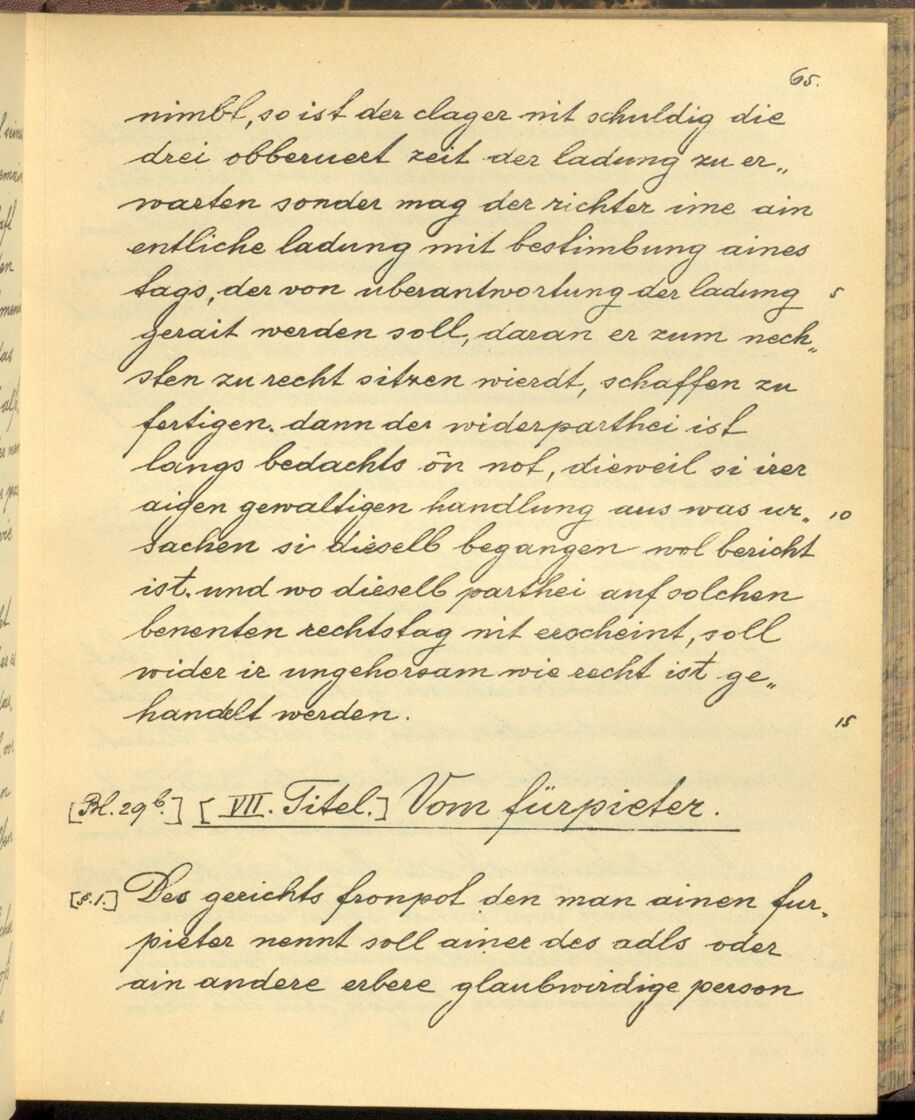 65.
nimbt, so ist der clager nit schuldig die
drei obberuert zeit der ladung zu er„
warten sonder mag der richter ime ain
entliche ladung mit bestimbung aines
tags, der von uberantwortung der ladung 5
gerait werden soll, daran er zum nech„
sten zu recht sitzen wierdt, schaffen zu
fertigen. dann der widerparthei ist
langs bedachts ōn not, dieweil si irer
aigen gewaltigen handlung aus was ur„ 10
sachen si dieselb begangen wol bericht
ist. und wo dieselb parthei auf solchen
benenten rechtstag nit erscheint, soll
wider ir ungehorsam wie recht ist ge„
handelt werden. 15
[Bl. 29b.] [VII. Titel.] Vom fürpieter.
[§.1.] Des gerichts fronpot den man ainen fur„
pieter nennt soll ainer des adls oder
ain andere erbere glaubwirdige person